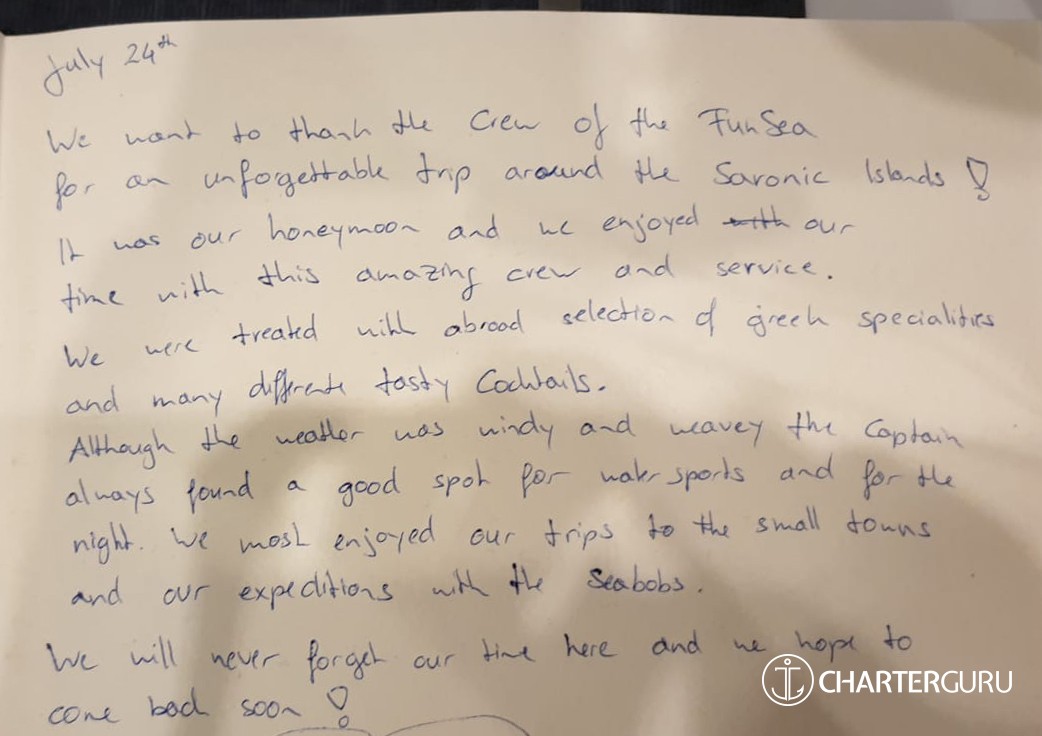 July 24th
We want to thank the Crew of the FunSea
for an unforgettable trip around the Saronic Islands !
It was our honeymoon and we enjoyed with our
time with this amazing crew and service.
We were treated with abroad selection of greek specialities
and many differente tasty Cocktails.
Although the weather was windy and weavey the Captain
always found a good spot for water sports and for the
night. We most enjoyed our trips to the small towns
and our expeditions with the Seabobs.
We will never forget our time here and we hope to
come back soon !
CHARTERGURU